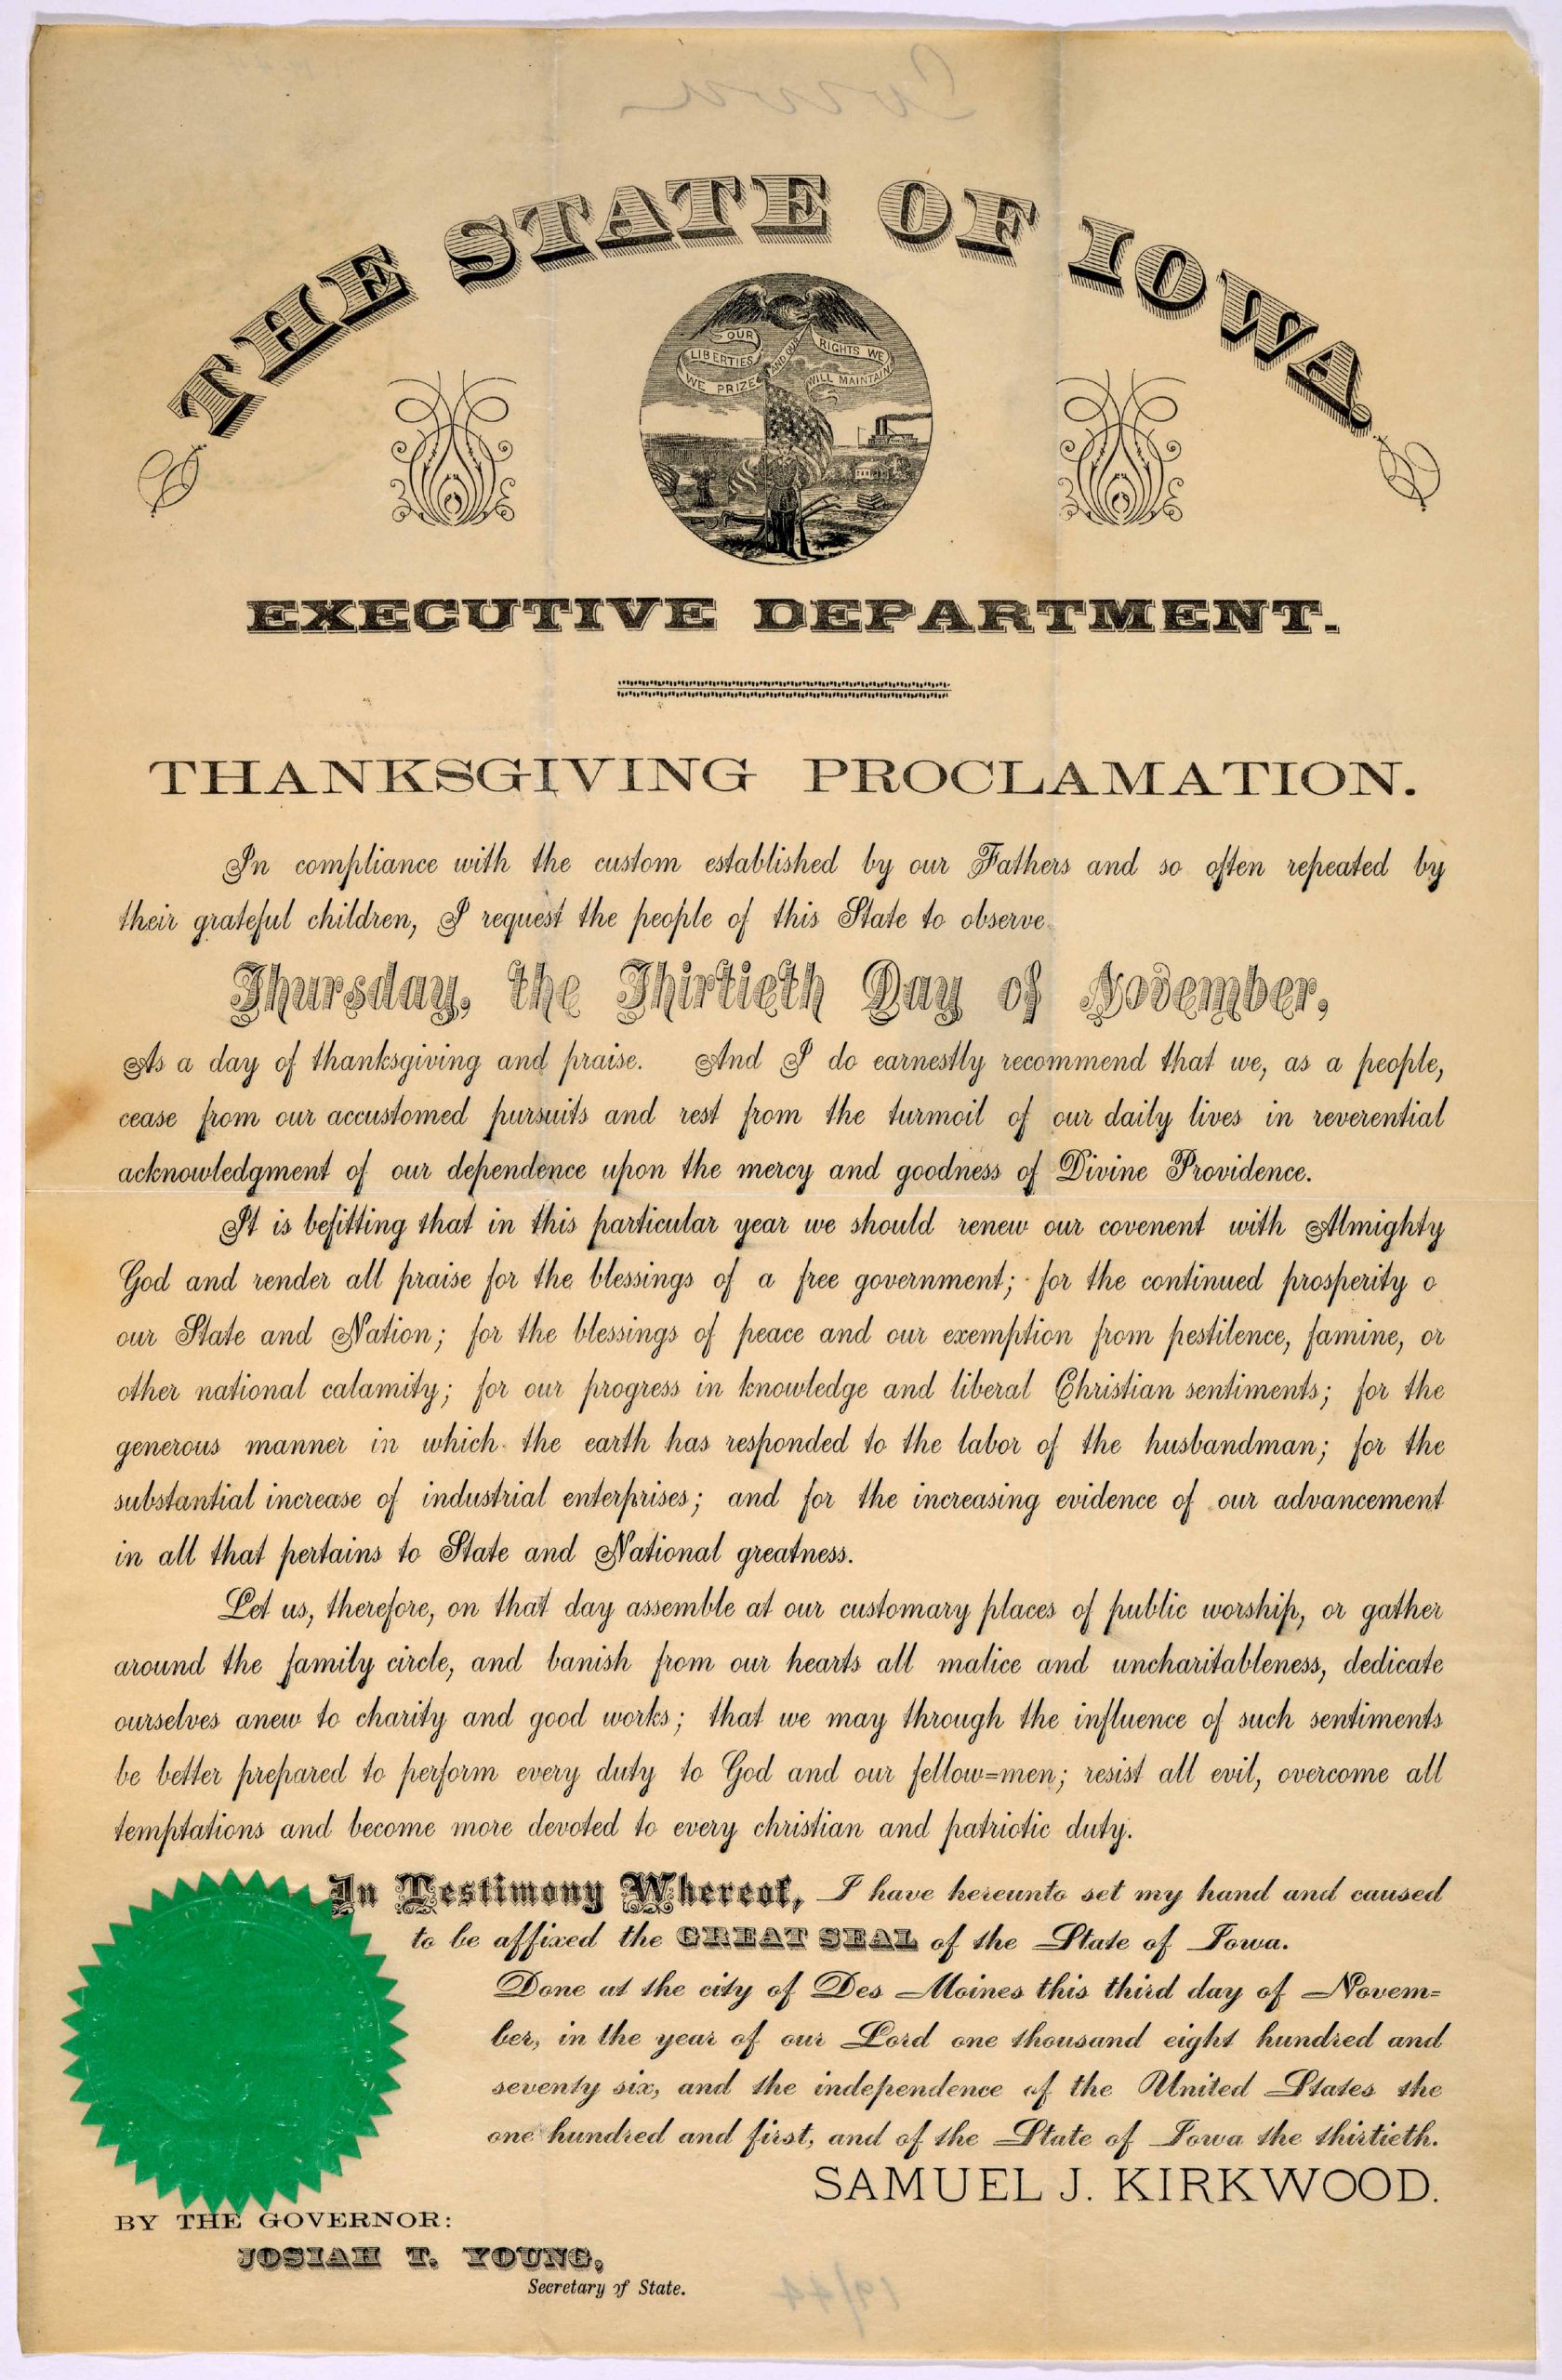 THE STATE OF IOWA.
OUR
LIBERTIES
WE PRIZE
AND OUR
RIGHTS WE
WILL MAINTAIN
EXECUTIVE DEPARTMENT.
THANKSGIVING PROCLAMATION.
In compliance with the custom established by our Fathers and so often repeated by
their grateful children, I request the people of this State to observe
Thursday, the Thirtieth Day of November,
As a day of thanksgiving and praise. And I do earnestly recommend that we, as a people,
cease from our accustomed pursuits and rest from the turmoil of our daily lives in reverential
acknowledgment of our dependence upon the mercy and goodness of Divine Providence.
It is befitting that in this particular year we should renew our covenent with Almighty
God and render all praise for the blessings of a free government; for the continued prosperity o
our State and Nation; for the blessings of peace and our exemption from pestilence, famine, or
other national calamity; for our progress in knowledge and liberal Christian sentiments; for the
generous manner in which the earth has responded to the labor of the husbandman; for the
substantial increase of industrial enterprises; and for the increasing evidence of our advancement
in all that pertains to State and National greatness.
Let us, therefore, on that day assemble at our customary places of public worship, or gather
around the family circle, and banish from our hearts all malice and uncharitableness, dedicate
ourselves anew to charity and good works; that we may through the influence of such sentiments
be better prepared to perform every duty to God and our fellow=men; resist all evil, overcome all
temptations and become more devoted to every christian and patriotic duty.
In Testimony Whereof, I have hereunto set my hand and caused
to be affixed the GREAT SEAL of the State of Iowa.
Done at the city of Des Moines this third day of Novem=
ber, in the year of our Lord one thousand eight hundred and
seventy six, and the independence of the United States the
one hundred and first, and of the State of Iowa the thirtieth.
SAMUEL J. KIRKWOOD.
BY THE GOVERNOR:
JOSIAH T. YOUNG,
Secretary of State.